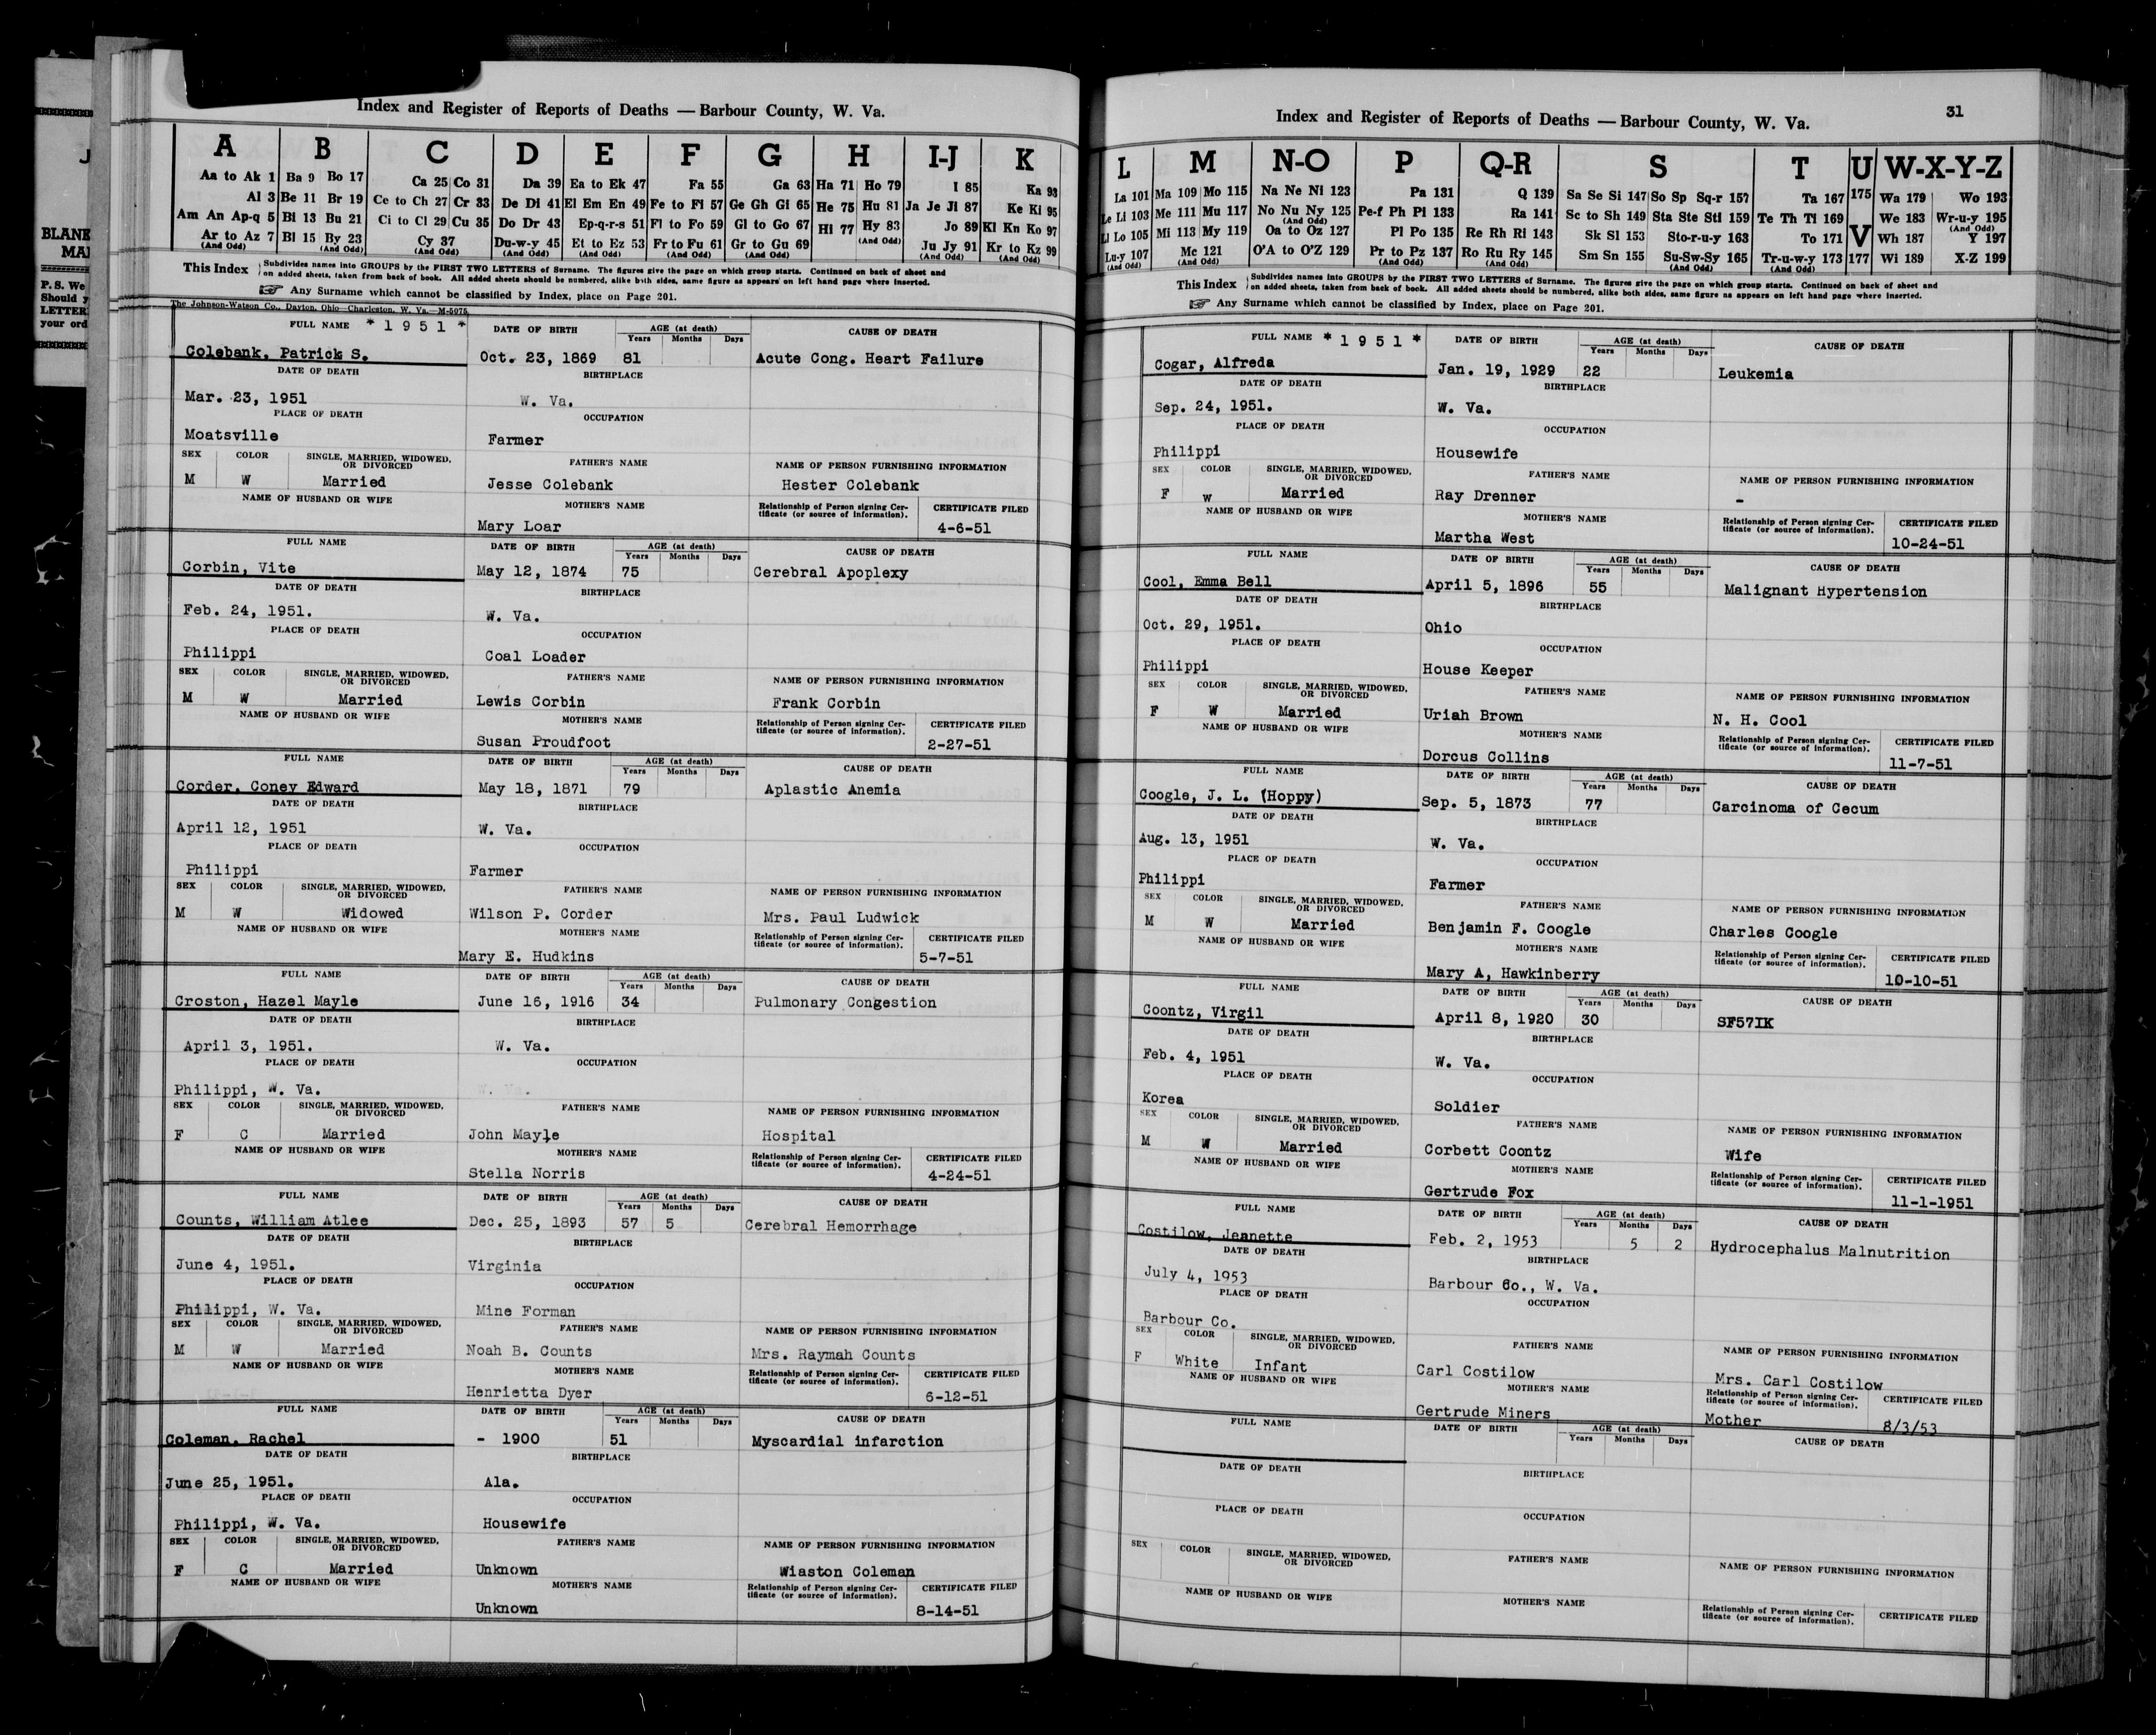 BLANK
MAI
P. S. We
Should y
LETTER
your ord
Index and Register of Reports of Deaths — Barbour County, W. Va.
A B C D E F G H I-J K
Aa to Ak 1 Ba 9 Bo 17 Ca 25 Co 31 Da 39 Ea to Ek 47 Fa 55 Ga 63 Ha 71 Ho 79 I 85 Ka 93
Al 3 Be 11 Br 19 Ce to Ch 27 Cr 33 De Di 41 El Em En 49 Fe to Fi 57 Ge Gh Gi 65 He 75 Hu 81 Ja Je Ji 87 Ke Ki 95
Am An Ap-q 5 Bi 13 Bu 21 Ci to Cl 29 Cu 35 Do Dr 43 Ep-q-r-s 51 Fl to Fo 59 Gl to Go 67 Hi 77 Hy 83 Jo 89 Kl Kn Ko 97
(And Odd)
Ar to Az 7 Bl 15 By 23 Cy 37 Du-w-y 45 Et to Ez 53 Fr to Fu 61 Gr to Gu 69 Ju Jy 91 Kr to Kz 99
(And Odd) (And Odd) (And Odd) (And Odd) (And Odd) (And Odd) (And Odd) (And Odd)
This Index Subdivides names into GROUPS by the FIRST TWO LETTERS of Surname. The figures give the page on which group starts. Continued on back of sheet and
on added sheets, taken from back of book. All added sheets should be numbered, alike both sides, same figure as appears on left hand page where inserted.
Any Surname which cannot be classified by Index, place on Page 201.
The Johnson-Watson Co., Dayton, Ohio—Charleston, W. Va.—M-5075
FULL NAME * 1 9 5 1 * DATE OF BIRTH AGE (at death) CAUSE OF DEATH
Years Months Days
Colebank, Patrick S. Oct. 23, 1869 81 Acute Cong. Heart Failure
DATE OF DEATH BIRTHPLACE
Mar. 23, 1951 W. Va.
PLACE OF DEATH OCCUPATION
Moatsville Farmer
SEX COLOR SINGLE, MARRIED, WIDOWED, OR DIVORCED FATHER'S NAME NAME OF PERSON FURNISHING INFORMATION
M W Married Jesse Colebank Hester Colebank
NAME OF HUSBAND OR WIFE MOTHER'S NAME Relationship of Person signing Certificate (or source of information). CERTIFICATE FILED
Mary Loar 4-6-51
FULL NAME DATE OF BIRTH AGE (at death) CAUSE OF DEATH
Years Months Days
Corbin, Vite May 12, 1874 75 Cerebral Apoplexy
DATE OF DEATH BIRTHPLACE
Feb. 24, 1951. W. Va.
PLACE OF DEATH OCCUPATION
Philippi Coal Loader
SEX COLOR SINGLE, MARRIED, WIDOWED, OR DIVORCED FATHER'S NAME NAME OF PERSON FURNISHING INFORMATION
M W Married Lewis Corbin Frank Corbin
NAME OF HUSBAND OR WIFE MOTHER'S NAME Relationship of Person signing Certificate (or source of information). CERTIFICATE FILED
Susan Proudfoot 2-27-51
FULL NAME DATE OF BIRTH AGE (at death) CAUSE OF DEATH
Years Months Days
Corder, Coney Edward May 18, 1871 79 Aplastic Anemia
DATE OF DEATH BIRTHPLACE
April 12, 1951 W. Va.
PLACE OF DEATH OCCUPATION
Philippi Farmer
SEX COLOR SINGLE, MARRIED, WIDOWED, OR DIVORCED FATHER'S NAME NAME OF PERSON FURNISHING INFORMATION
M W Widowed Wilson P. Corder Mrs. Paul Ludwick
NAME OF HUSBAND OR WIFE MOTHER'S NAME Relationship of Person signing Certificate (or source of information). CERTIFICATE FILED
Mary E. Hudkins 5-7-51
FULL NAME DATE OF BIRTH AGE (at death) CAUSE OF DEATH
Years Months Days
Croston, Hazel Mayle June 16, 1916 34 Pulmonary Congestion
DATE OF DEATH BIRTHPLACE
April 3, 1951. W. Va.
PLACE OF DEATH OCCUPATION
Philippi, W. Va. W. Va.
SEX COLOR SINGLE, MARRIED, WIDOWED, OR DIVORCED FATHER'S NAME NAME OF PERSON FURNISHING INFORMATION
F C Married John Mayle Hospital
NAME OF HUSBAND OR WIFE MOTHER'S NAME Relationship of Person signing Certificate (or source of information). CERTIFICATE FILED
Stella Norris 4-24-51
FULL NAME DATE OF BIRTH AGE (at death) CAUSE OF DEATH
Years Months Days
Counts, William Atlee Dec. 25, 1893 57 5 Cerebral Hemorrhage
DATE OF DEATH BIRTHPLACE
June 4, 1951. Virginia
PLACE OF DEATH OCCUPATION
Philippi, W. Va. Mine Forman
SEX COLOR SINGLE, MARRIED, WIDOWED, OR DIVORCED FATHER'S NAME NAME OF PERSON FURNISHING INFORMATION
M W Married Noah B. Counts Mrs. Raymah Counts
NAME OF HUSBAND OR WIFE MOTHER'S NAME Relationship of Person signing Certificate (or source of information). CERTIFICATE FILED
Henrietta Dyer 6-12-51
FULL NAME DATE OF BIRTH AGE (at death) CAUSE OF DEATH
Years Months Days
Coleman, Rachel - 1900 51 Myscardial infarction
DATE OF DEATH BIRTHPLACE
June 25, 1951. Ala.
PLACE OF DEATH OCCUPATION
Philippi, W. Va. Housewife
SEX COLOR SINGLE, MARRIED, WIDOWED, OR DIVORCED FATHER'S NAME NAME OF PERSON FURNISHING INFORMATION
F C Married Unknown Wiaston Coleman
NAME OF HUSBAND OR WIFE MOTHER'S NAME Relationship of Person signing Certificate (or source of information). CERTIFICATE FILED
Unknown 8-14-51
31
Index and Register of Reports of Deaths — Barbour County, W. Va.
L M N-O P Q-R S T U W-X-Y-Z
La 101 Ma 109 Mo 115 Na Ne Ni 123 Pa 131 Q 139 Sa Se Si 147 So Sp Sq-r 157 Ta 167 175 Wa 179 Wo 193
Le Li 103 Me 111 Mu 117 No Nu Ny 125 Pe-f Ph Pi 133 Ra 141 Sc to Sh 149 Sta Ste Sti 159 Te Th Ti 169 We 183 Wr-u-y 195
(And Odd) (And Odd)
Ll Lo 105 Mi 113 My 119 Oa to Oz 127 Pl Po 135 Re Rh Ri 143 Sk Sl 153 Sto-r-u-y 163 To 171 V Wh 187 Y 197
Lu-y 107 Mc 121 O'A to O'Z 129 Pr to Pz 137 Ro Ru Ry 145 Sm Sn 155 Su-Sw-Sy 165 Tr-u-w-y 173 177 Wi 189 X-Z 199
(And Odd) (And Odd) (And Odd) (And Odd) (And Odd) (And Odd)
This Index Subdivides names into GROUPS by the FIRST TWO LETTERS of Surname. The figures give the page on which group starts. Continued on back of sheet and
on added sheets, taken from back of book. All added sheets should be numbered, alike both sides, same figure as appears on left hand page where inserted.
Any Surname which cannot be classified by Index, place on Page 201.
FULL NAME * 1 9 5 1 * DATE OF BIRTH AGE (at death) CAUSE OF DEATH
Years Months Days
Cogar, Alfreda Jan. 19, 1929 22 Leukemia
DATE OF DEATH BIRTHPLACE
Sep. 24, 1951. W. Va.
PLACE OF DEATH OCCUPATION
Philippi Housewife
SEX COLOR SINGLE, MARRIED, WIDOWED, OR DIVORCED FATHER'S NAME NAME OF PERSON FURNISHING INFORMATION
F w Married Ray Drenner -
NAME OF HUSBAND OR WIFE MOTHER'S NAME Relationship of Person signing Certificate (or source of information). CERTIFICATE FILED
Martha West 10-24-51
FULL NAME DATE OF BIRTH AGE (at death) CAUSE OF DEATH
Years Months Days
Cool, Emma Bell April 5, 1896 55 Malignant Hypertension
DATE OF DEATH BIRTHPLACE
Oct. 29, 1951. Ohio
PLACE OF DEATH OCCUPATION
Philippi House Keeper
SEX COLOR SINGLE, MARRIED, WIDOWED, OR DIVORCED FATHER'S NAME NAME OF PERSON FURNISHING INFORMATION
F W Married Uriah Brown N. H. Cool
NAME OF HUSBAND OR WIFE MOTHER'S NAME Relationship of Person signing Certificate (or source of information). CERTIFICATE FILED
Dorcus Collins 11-7-51
FULL NAME DATE OF BIRTH AGE (at death) CAUSE OF DEATH
Years Months Days
Coogle, J. L. (Hoppy) Sep. 5, 1873 77 Carcinoma of Cecum
DATE OF DEATH BIRTHPLACE
Aug. 13, 1951 W. Va.
PLACE OF DEATH OCCUPATION
Philippi Farmer
SEX COLOR SINGLE, MARRIED, WIDOWED, OR DIVORCED FATHER'S NAME NAME OF PERSON FURNISHING INFORMATION
M W Married Benjamin F. Coogle Charles Coogle
NAME OF HUSBAND OR WIFE MOTHER'S NAME Relationship of Person signing Certificate (or source of information). CERTIFICATE FILED
Mary A, Hawkinberry 10-10-51
FULL NAME DATE OF BIRTH AGE (at death) CAUSE OF DEATH
Years Months Days
Coontz, Virgil April 8, 1920 30 SF57IK
DATE OF DEATH BIRTHPLACE
Feb. 4, 1951 W. Va.
PLACE OF DEATH OCCUPATION
Korea Soldier
SEX COLOR SINGLE, MARRIED, WIDOWED, OR DIVORCED FATHER'S NAME NAME OF PERSON FURNISHING INFORMATION
M W Married Corbett Coontz Wife
NAME OF HUSBAND OR WIFE MOTHER'S NAME Relationship of Person signing Certificate (or source of information). CERTIFICATE FILED
Gertrude Fox 11-1-1951
FULL NAME DATE OF BIRTH AGE (at death) CAUSE OF DEATH
Years Months Days
Costilow, Jeanette Feb. 2, 1953 5 2 Hydrocephalus Malnutrition
DATE OF DEATH BIRTHPLACE
July 4, 1953 Barbour Co., W. Va.
PLACE OF DEATH OCCUPATION
Barbour Co.
SEX COLOR SINGLE, MARRIED, WIDOWED, OR DIVORCED FATHER'S NAME NAME OF PERSON FURNISHING INFORMATION
F White Infant Carl Costilow Mrs. Carl Costilow
NAME OF HUSBAND OR WIFE MOTHER'S NAME Relationship of Person signing Certificate (or source of information). CERTIFICATE FILED
Gertrude Miners Mother 8/3/53
FULL NAME DATE OF BIRTH AGE (at death) CAUSE OF DEATH
Years Months Days
DATE OF DEATH BIRTHPLACE
PLACE OF DEATH OCCUPATION
SEX COLOR SINGLE, MARRIED, WIDOWED, OR DIVORCED FATHER'S NAME NAME OF PERSON FURNISHING INFORMATION
NAME OF HUSBAND OR WIFE MOTHER'S NAME Relationship of Person signing Certificate (or source of information). CERTIFICATE FILED